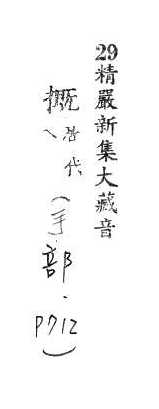 29精嚴新集大藏音
摡代（手部．P712）